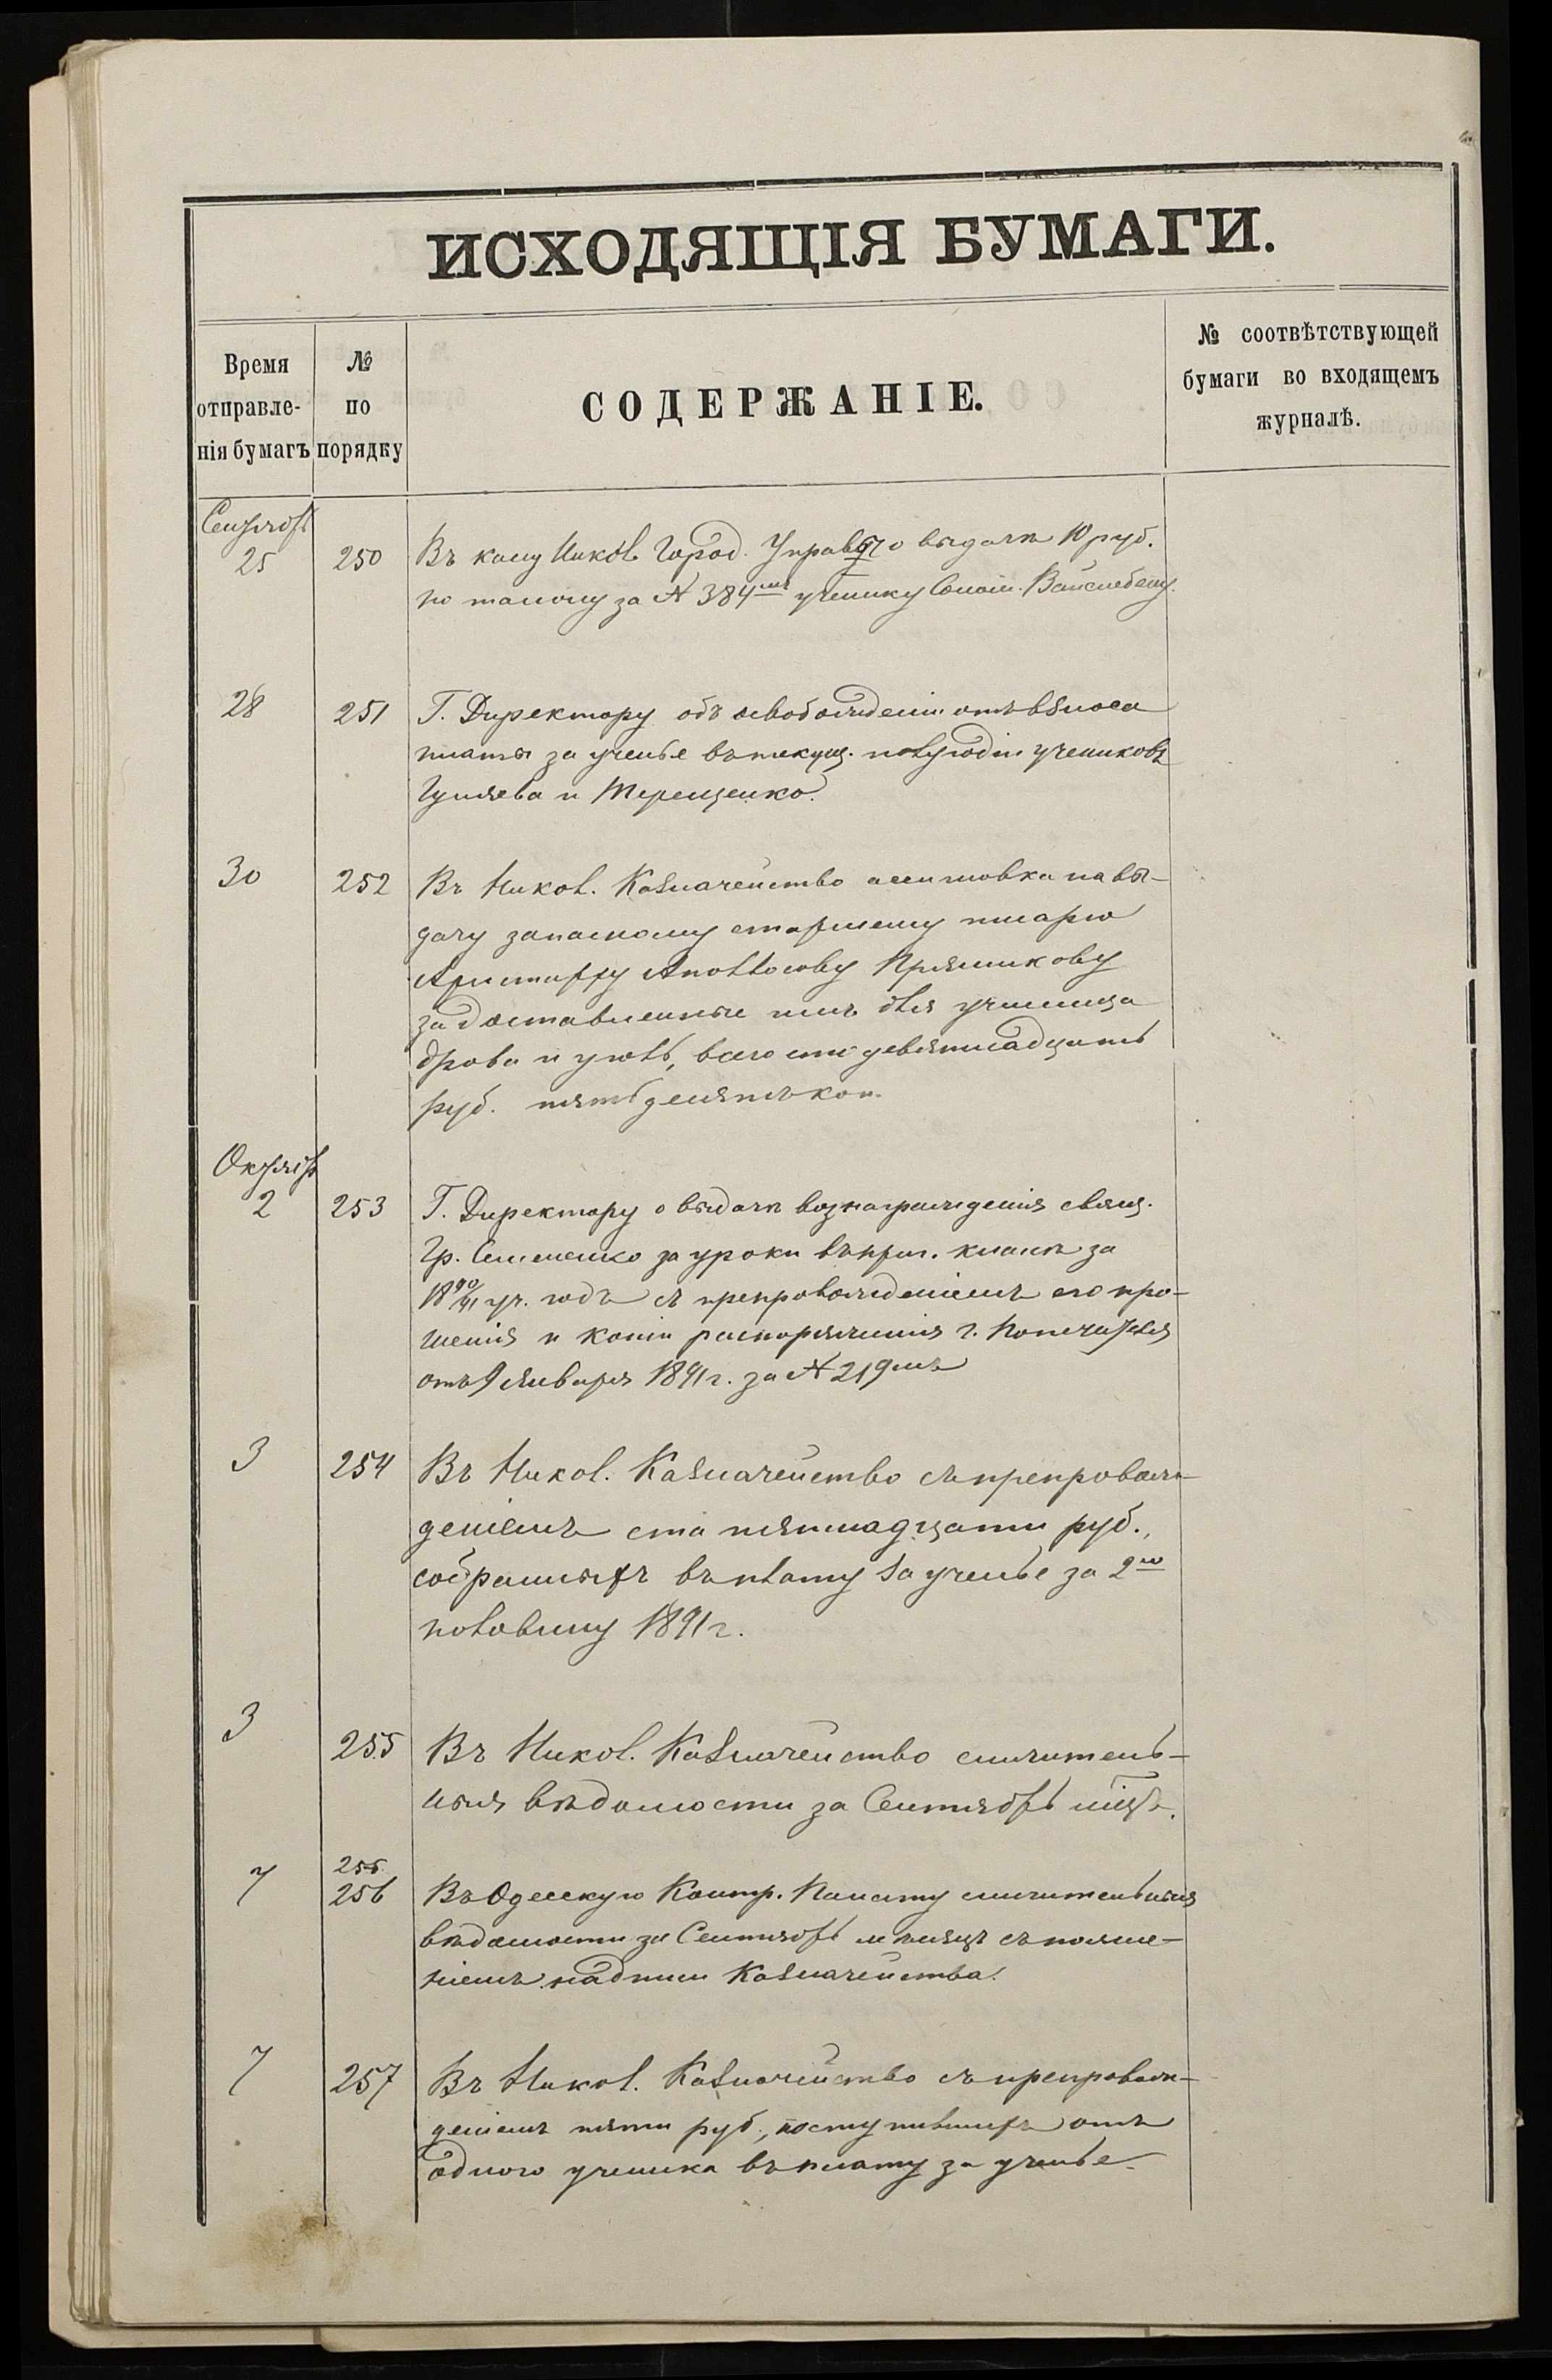 ИСХОДЯЩІЯ БУМАГИ.
Время отправле-нія бумагъ
№ по порядку
СОДЕРЖАНІЕ.
№ соотвѣтствующей бумаги во входящемъ журналѣ.
Сентябрь
25 250 Въ Никол. Город. Управу о выдачѣ 10 руб.
по талону за № 384мъ ученику
28 251 Г. Директору объ освобожденіи отъ взноса
платы за ученье въ текущ. полугодіи учениковъ
Гуляева и Терещенко.
30 252 Въ Никол. Казначейство ассигновка на вы-
дачу запасному старшему писарю
Аристарху Прянишникову
за доставленные имъ для училища
дрова и уголь, всего сто девятнадцать
руб. пятьдесятъ коп.
Октябрь
2 253 Г. Директору о выдачѣ вознагражденія свящ.
Гр. Семененко за уроки въ приг. классѣ за
1890/91 уч. годъ съ препровожденіемъ его про-
шенія и копіи распоряженія г. Попечителя
отъ 9 января 1891 г. за № 219мъ
3 254 Въ Никол. Казначейство съ препровож-
деніемъ ста пятнадцати руб.,
собранныхъ въ плату за ученье за 2ю
половину 1891 г.
3 255 Въ Никол. Казначейство сличитель-
ныя вѣдомости за Сентябрь мцъ.
255.
7 256 Въ Одесскую Контр. Палату сличительныя
вѣдомости за Сентябрь мѣсяцъ съ
надписи Казначейства.
7 257 Въ Никол. Казначейство съ препровож-
деніемъ пяти руб., поступившихъ отъ
одного ученика въ плату за ученье.